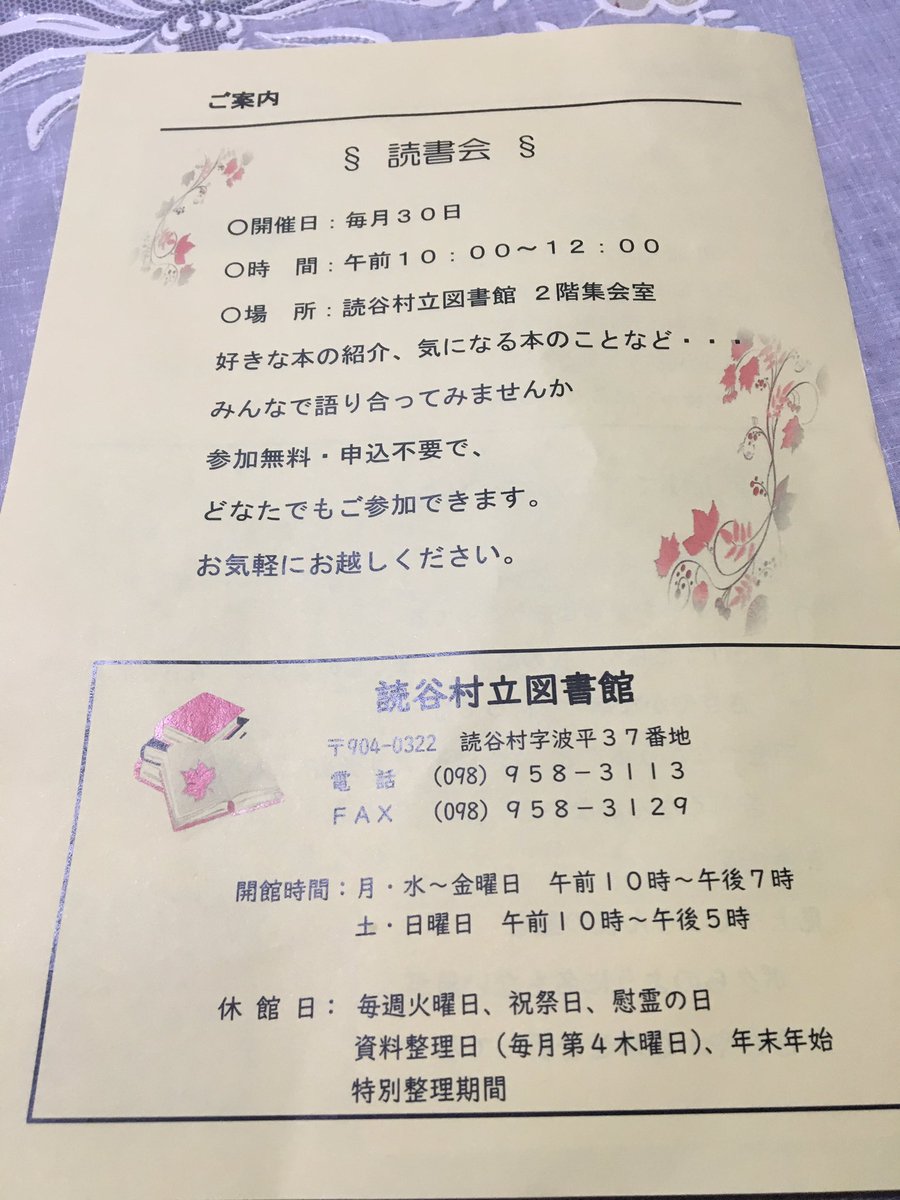 ご案内
§ 読書会 §
○開催日：毎月３０日
○時　間：午前１０：００～１２：００
○場　所：読谷村立図書館 ２階集会室
好きな本の紹介、気になる本のことなど・・・
みんなで語り合ってみませんか
参加無料・申込不要で、
どなたでもご参加できます。
お気軽にお越しください。
読谷村立図書館
〒904-0322　読谷村字波平３７番地
電　話　（098）９５８－３１１３
ＦＡＸ　（098）９５８－３１２９
開館時間：月・水～金曜日　午前１０時～午後７時
土・日曜日　午前１０時～午後５時
休 館 日： 毎週火曜日、祝祭日、慰霊の日
資料整理日（毎月第４木曜日）、年末年始
特別整理期間